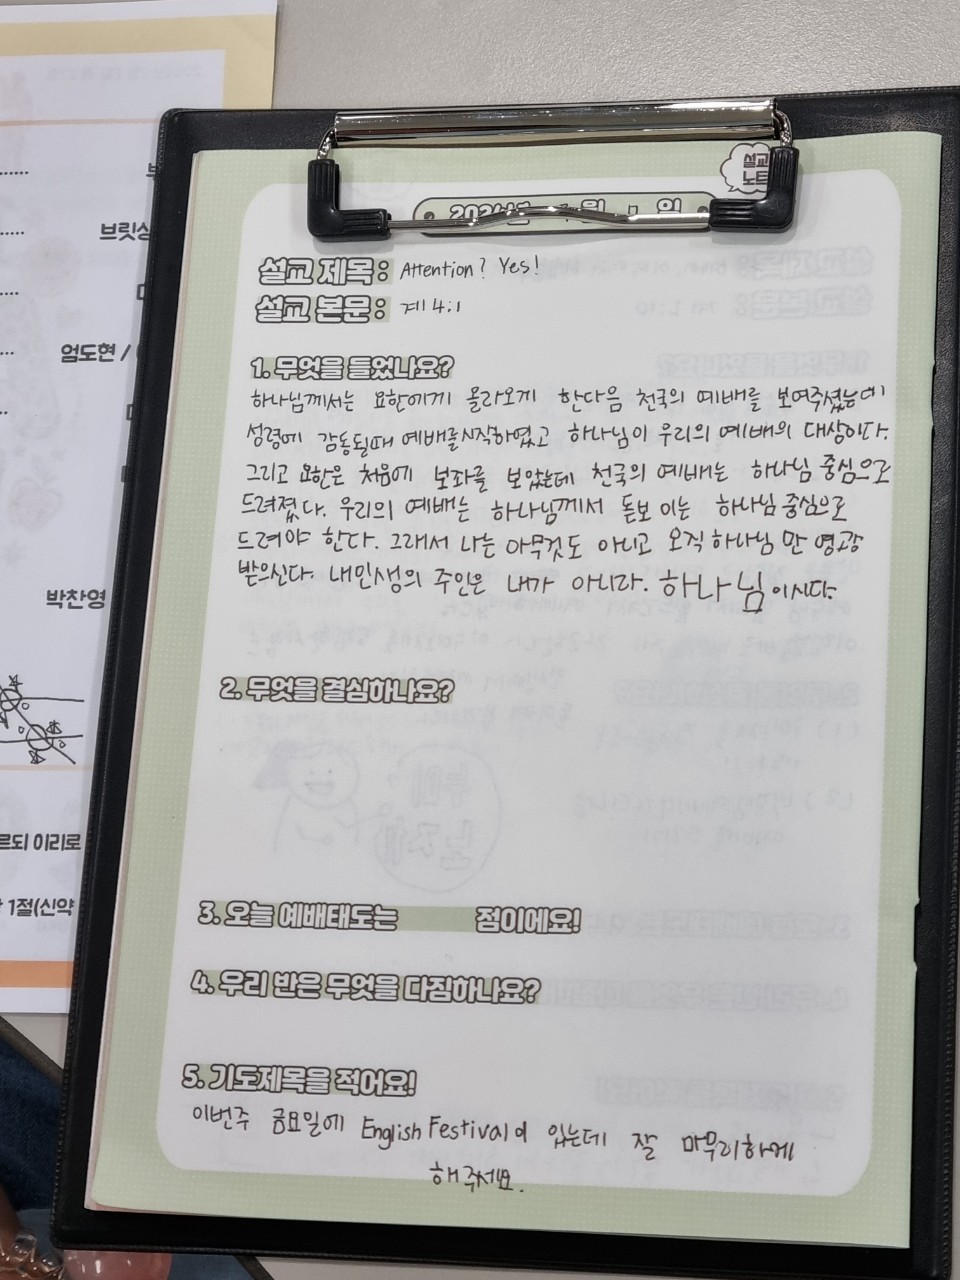 설교
노트
설교 제목 : Attention? Yes!
설교 본문 : 계 4:1
1. 무엇을 들었나요?
하나님께서는 요한에게 올라오게 한다음 천국의 예배를 보여주셨는데
성령에 감동될때 예배를시작하였고 하나님이 우리의 예배의 대상이다.
그리고 요한은 처음에 보좌를 보았는데 천국의 예배는 하나님 중심으로
드려졌다. 우리의 예배는 하나님께서 돋보이는 하나님 중심으로
드려야 한다. 그래서 나는 아무것도 아니고 오직 하나님 만 영광
받으신다. 내인생의 주인은 내가 아니라. 하나님이시다.
2. 무엇을 결심하나요?
3. 오늘 예배태도는 점이에요!
4. 우리 반은 무엇을 다짐하나요?
5. 기도제목을 적어요!
이번주 금요일에 English Festival이 있는데 잘 마무리하게
해주세요.
브릿싱
엄도현 /
박찬영
르되 이리로
1절(신약